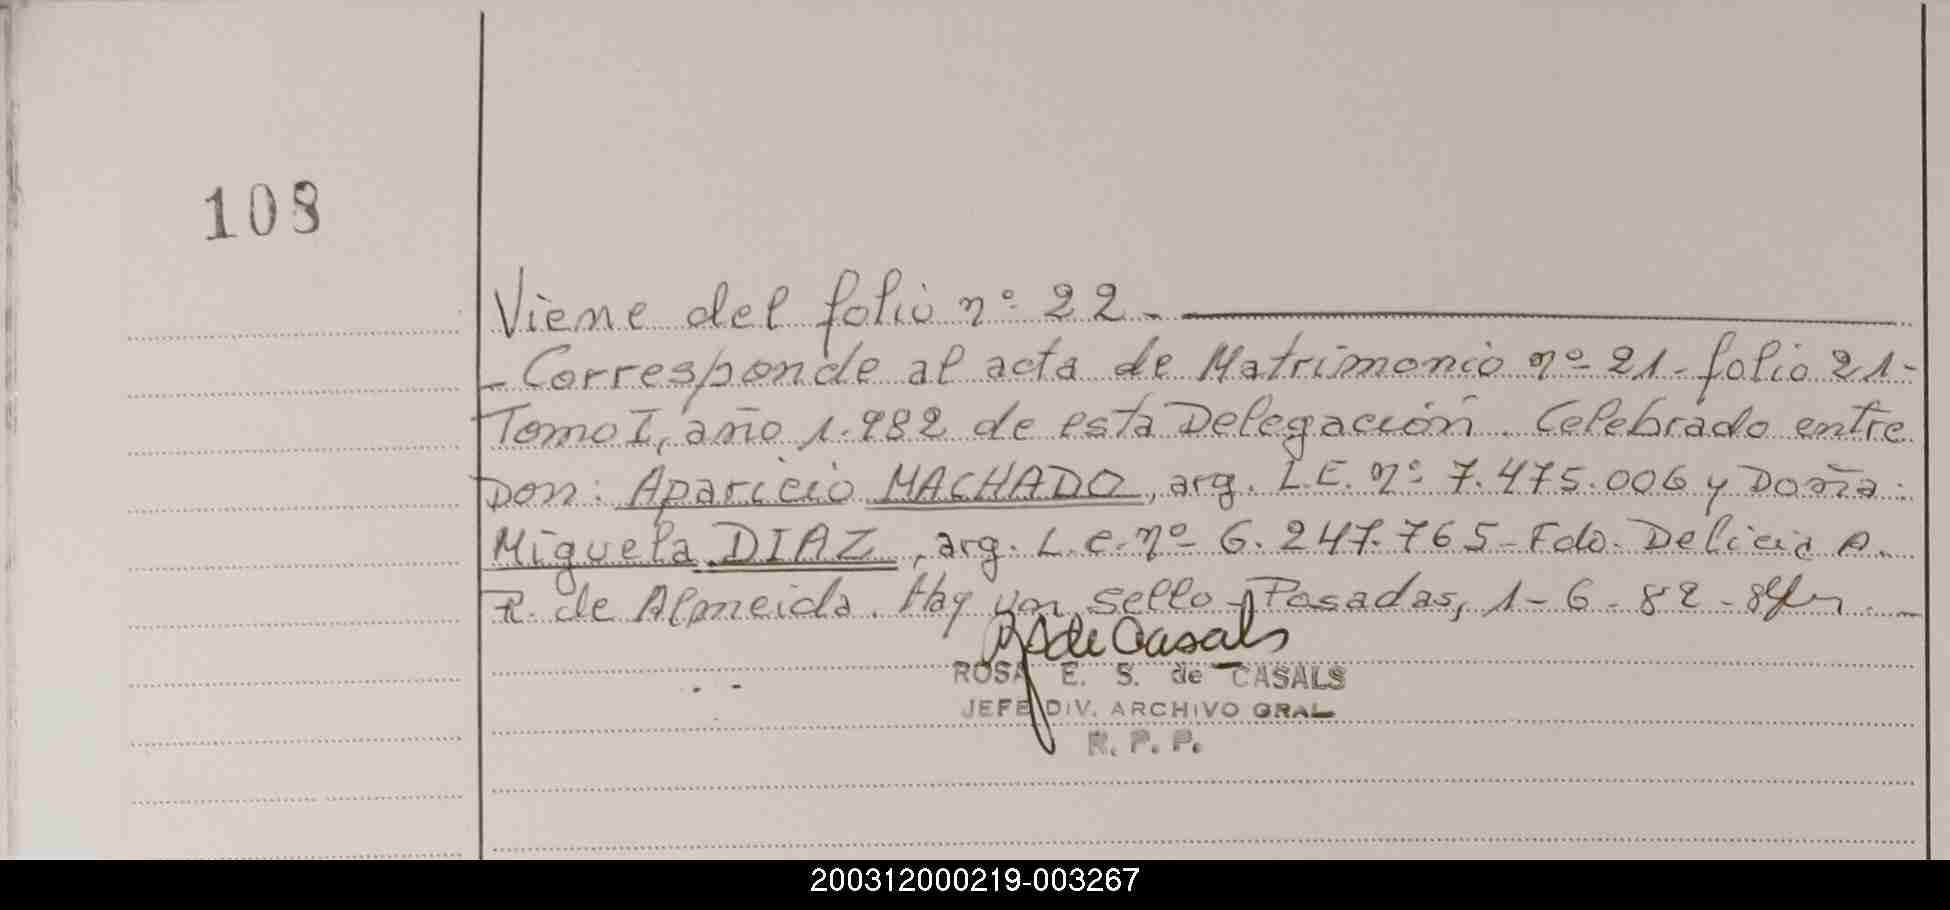 108
Viene del folio nº 22.
- Corresponde al acta de Matrimonio nº 21 - folio 21 -
Tomo I, año 1.982 de esta Delegación. Celebrado entre
Don: Aparicio MACHADO, arg. L.E. nº 7.475.006 y Doña:
Miguela DIAZ, arg. L.C. nº 6.247.765 - Fdo. Delicia A.
R. de Almeida. Hay un sello - Posadas, 1-6-82 -
de Casals
ROSA E. S. de CASALS
JEFE DIV. ARCHIVO GRAL
R. P. P.
200312000219-003267